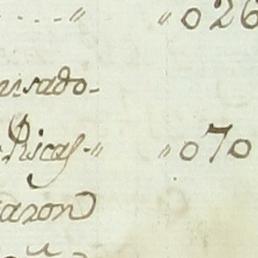 ..... " " 026
nsado-
Ricas - " " 070
razon